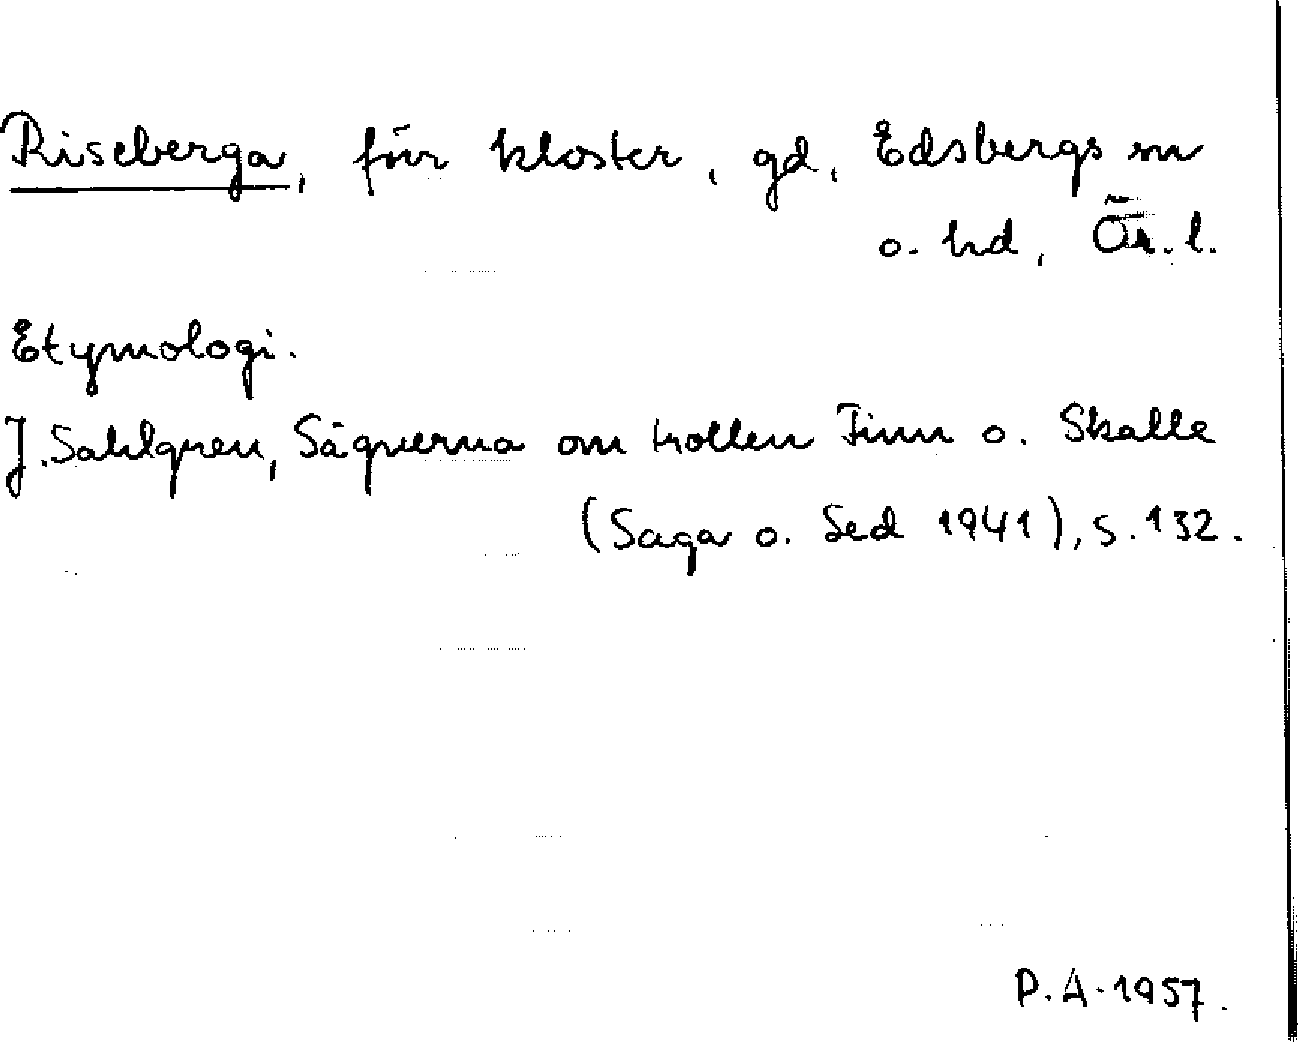 Riseberga, förr kloster, gd, Edsbergs sn
o. hd, Ör. l.
Etymologi.
J. Sahlgren, Sägnerna om trollen Finn o. Skalle
(Saga o. Sed 1941), s. 132.
P. A. 1957.